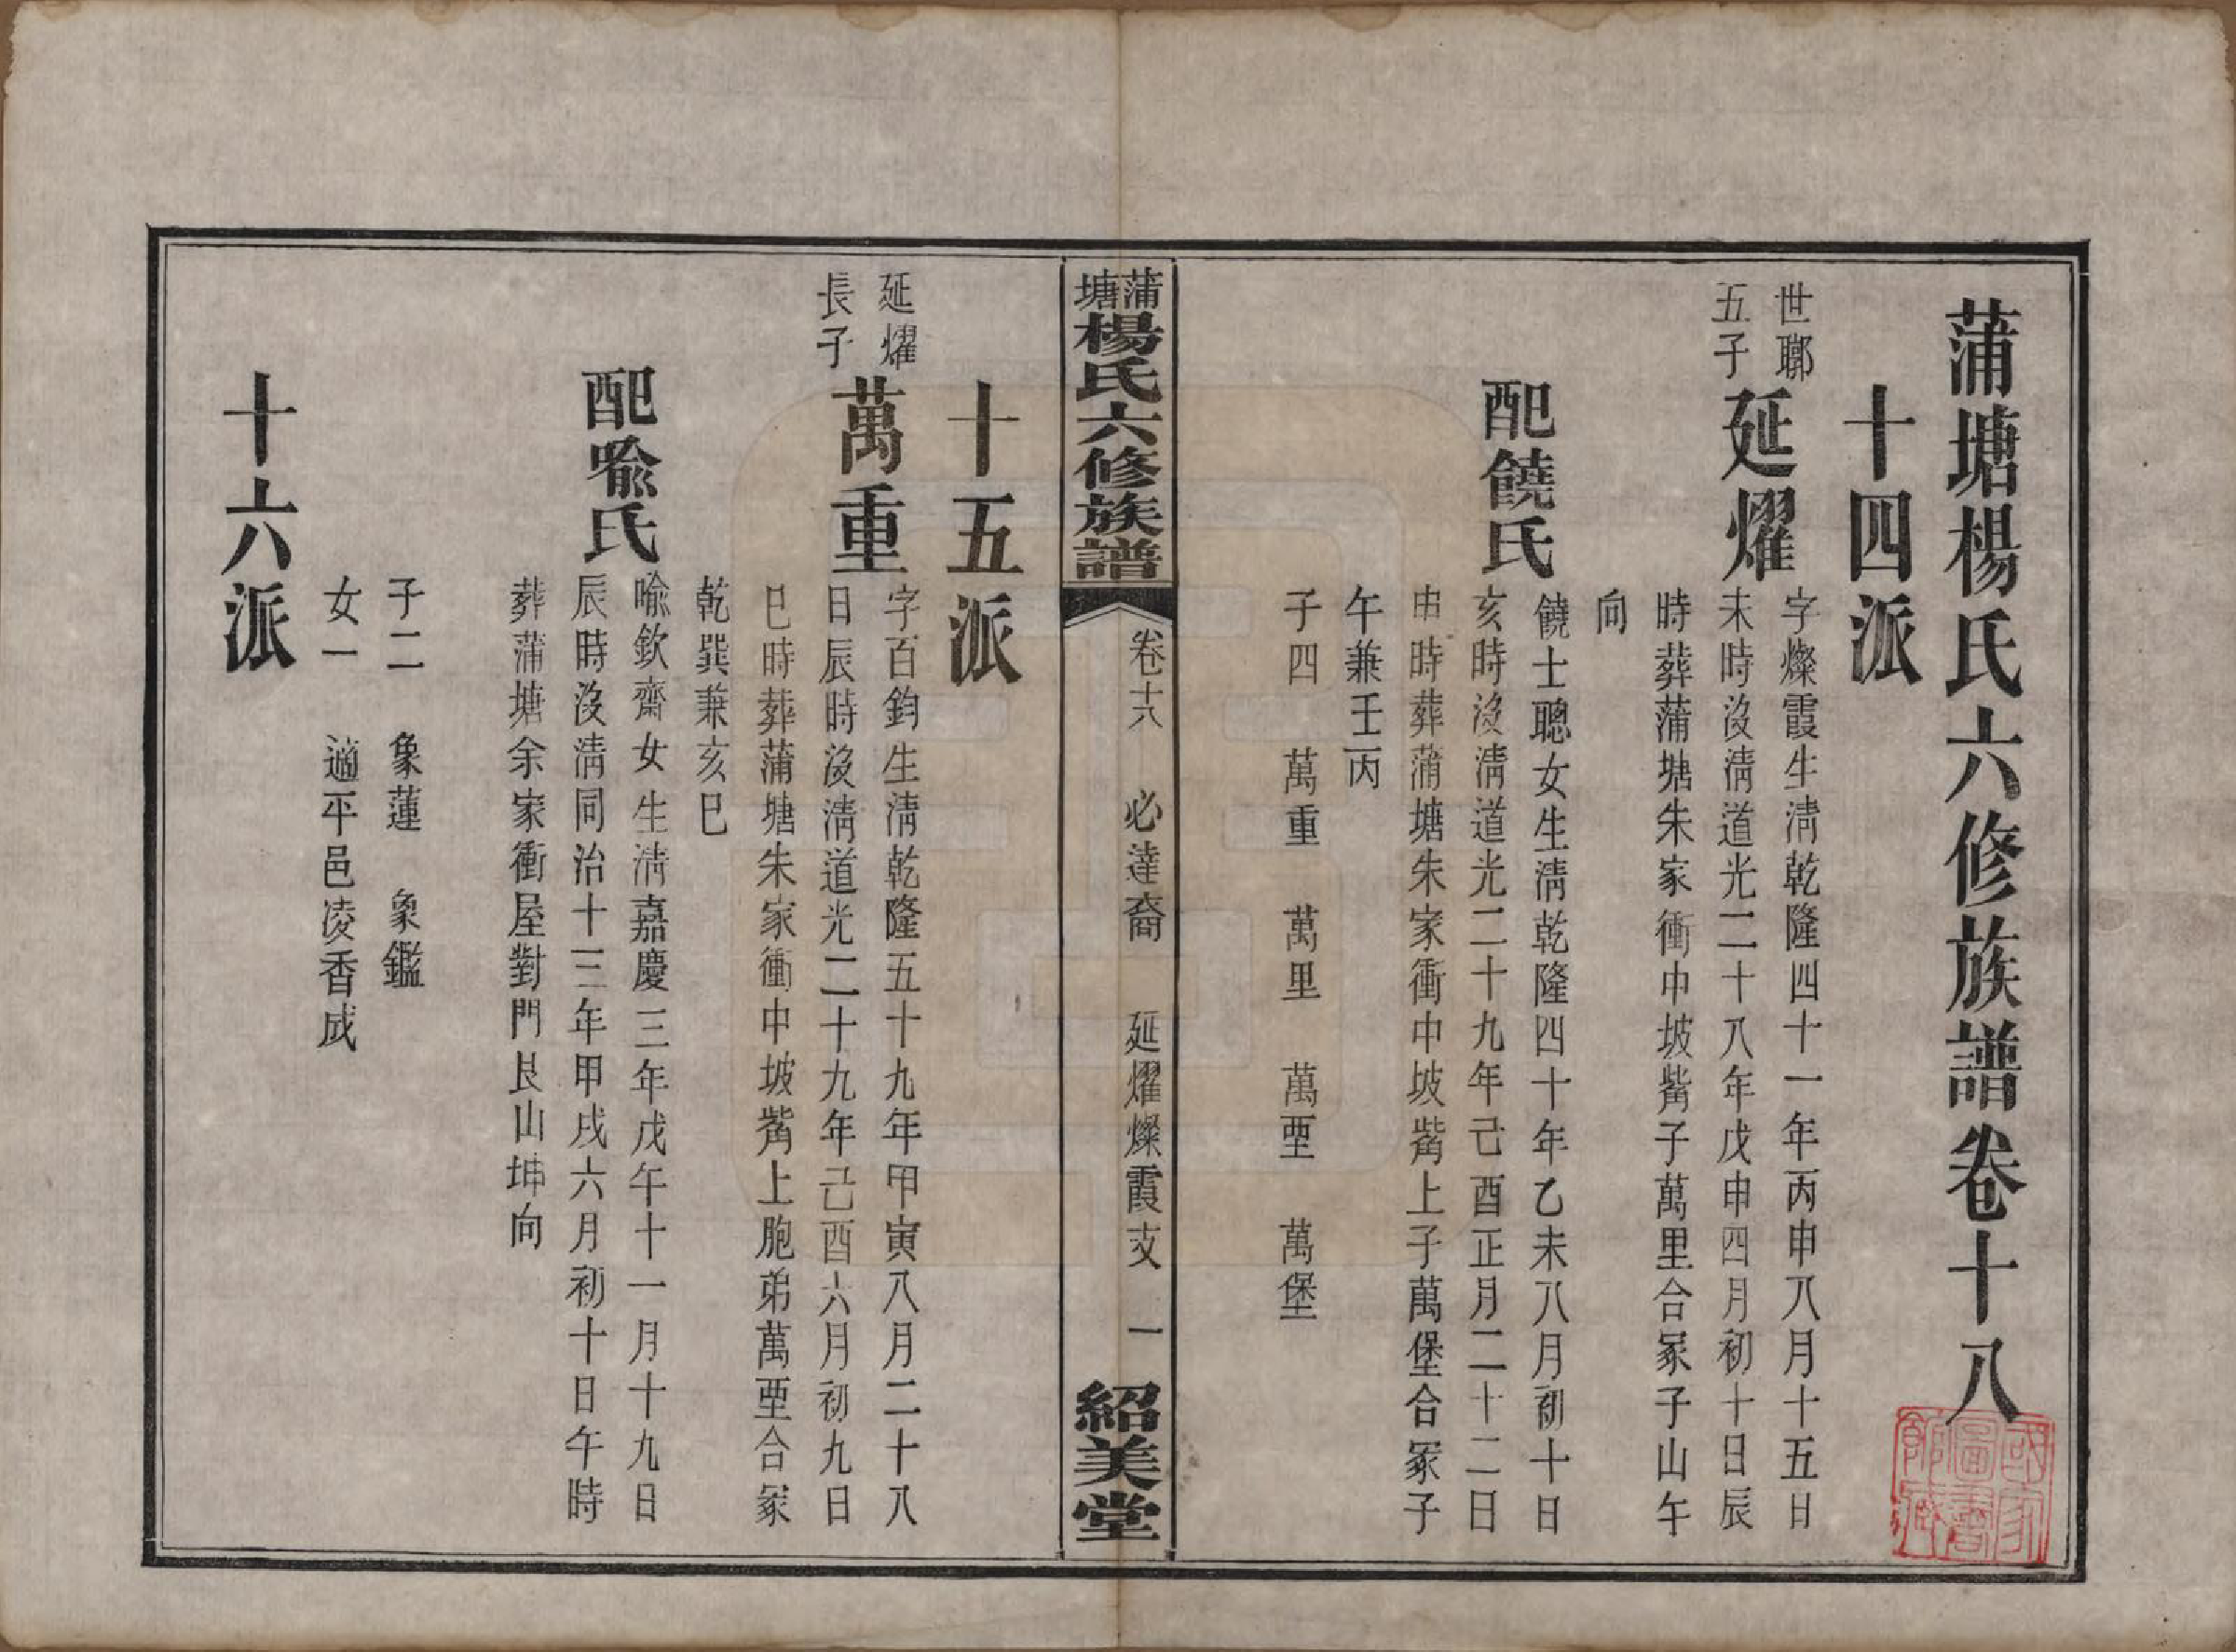 蒲塘楊氏六修族譜卷十八
十四派
世鄹五子
延燿
字燦霞生淸乾隆四十一年丙申八月十五日
未時沒淸道光二十八年戊申四月初十日辰
時葬蒲塘朱家衝中坡觜子萬里合冢子山午
向
配饒氏
饒士聰女生淸乾隆四十年乙未八月初十日
亥時沒淸道光二十九年己酉正月二十二日
申時葬蒲塘朱家衝中坡觜上子萬堡合冢子
午兼壬丙
子四 萬重 萬里 萬堊 萬堡
蒲塘楊氏六修族譜
卷十八 必達裔 延燿燦霞支 一
紹美堂
十五派
延燿長子
萬重
字百鈞生淸乾隆五十九年甲寅八月二十八
日辰時沒淸道光二十九年己酉六月初九日
巳時葬蒲塘朱家衝中坡觜上胞弟萬堊合冢
乾巽兼亥巳
配喩氏
喩欽齋女生淸嘉慶三年戊午十一月十九日
辰時沒淸同治十三年甲戌六月初十日午時
葬蒲塘余家衝屋對門艮山坤向
子二 象蓮 象鑑
女一 適平邑凌香成
十六派
國家圖書館藏